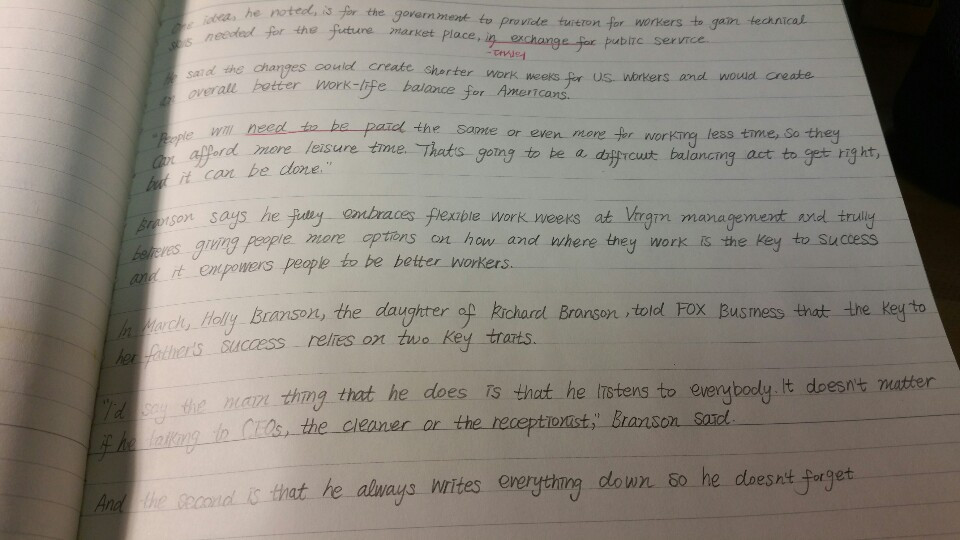 One idea, he noted, is for the government to provide tuition for workers to gain technical
needed for the future market place, in exchange for public service
he said the changes could create shorter work weeks for US workers and would create
an overall better work-life balance for Americans.
"People will need to be paid the same or even more for working less time, so they
can afford more leisure time. That's going to be a difficult balancing act to get right,
but it can be done."
Branson says he fully embraces flexible work weeks at Virgin management and trully
believes giving people more options on how and where they work is the key to success
and it empowers people to be better workers.
In March, Holly Branson, the daughter of Richard Branson, told FOX Business that the key to
her father's success relies on two key traits.
"I'd say the main thing that he does is that he listens to everybody. It doesn't matter
if he talking to CEOs, the cleaner or the receptionist," Branson said.
And the second is that he always writes everything down so he doesn't forget